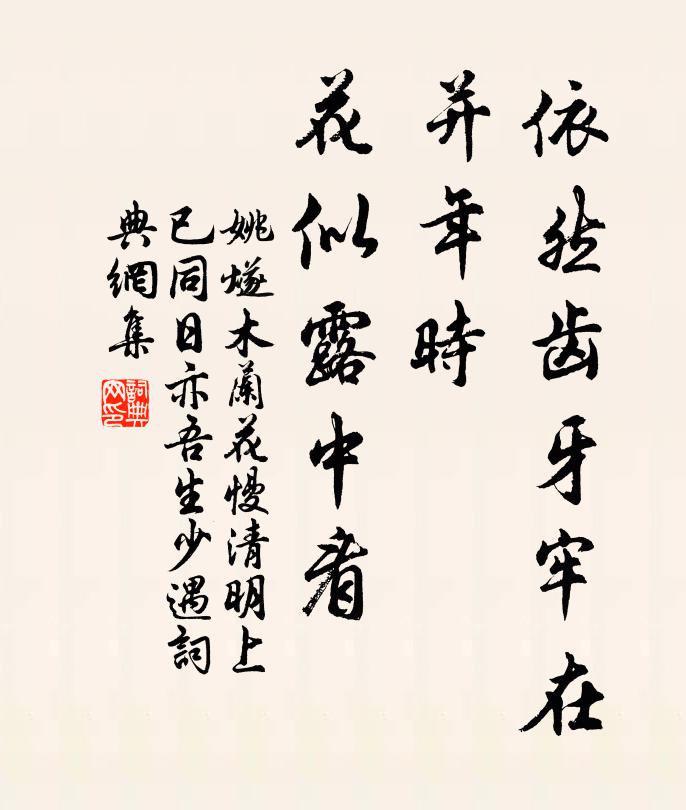 依然齿牙牢在
并年時
花似露中看
姚燧木蘭花慢清明上
已同日亦吾生少遇詞
典網集
詞典网印